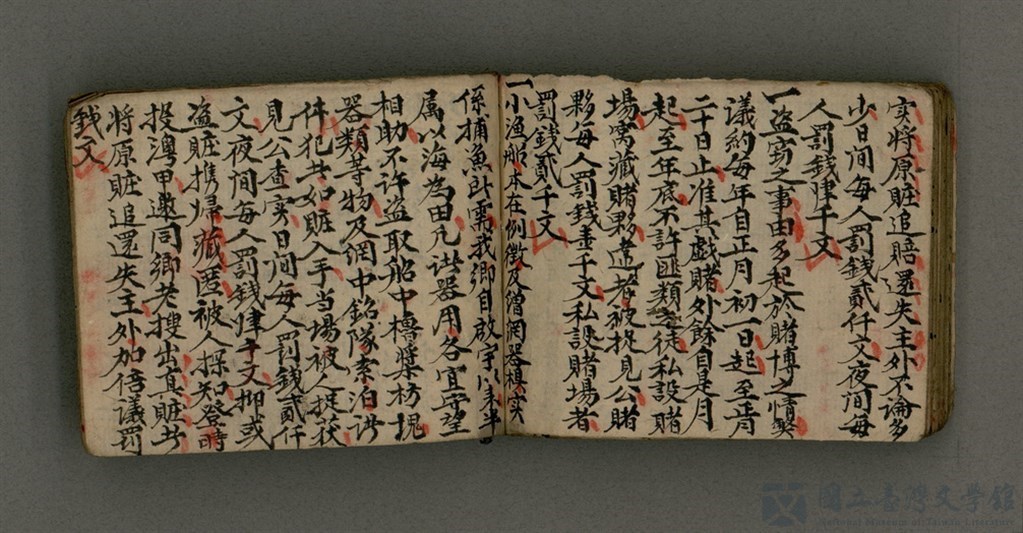 实将原賍追賠還失主外不論多
少日间每人罰錢貳仟文夜间每
人罰錢肆千文
一盗窃之事由多起於賭博之情獘
議約每年自正月初一日起至正月
二十日止准其戯賭外餘自是月
起至年底不許匪類之徒私設賭
場窩藏賭夥違者被捉見公賭
夥每人罰錢壹千文私設賭場者
罰錢貳千文
一小漁船本在例徴及繒網器具实
係捕魚所需我鄉自啟宇以来半
属以海為田凡諸器用各宜守望
相助不許盗取船中櫓槳枋塊
器類等物及網中索泊諸
件犯共如賍入手当場被人捉获
見公查实日间每人罰錢貳仟
文夜间每人罰錢肆千文抑或
盗賍携歸藏匿被人探知登時
投澳甲邀同鄉老搜出真賍共
将原賍追還失主外加倍議罰
錢文
國立臺灣文學館
National Museum of Taiwan Literature